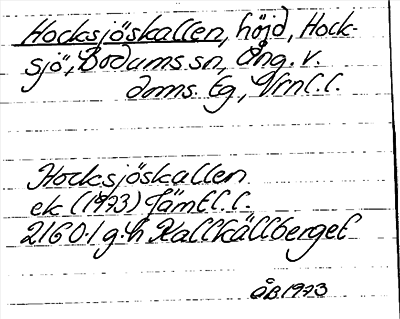 Hocksjöskallen, höjd, Hock-
sjö, Bodums sn, Ång. v.
doms. tg., Vrnl. l.
Hocksjöskallen
ek (1973) Jämtl. l.
2160.1 g.h Kallkällberget
ÅB 1973